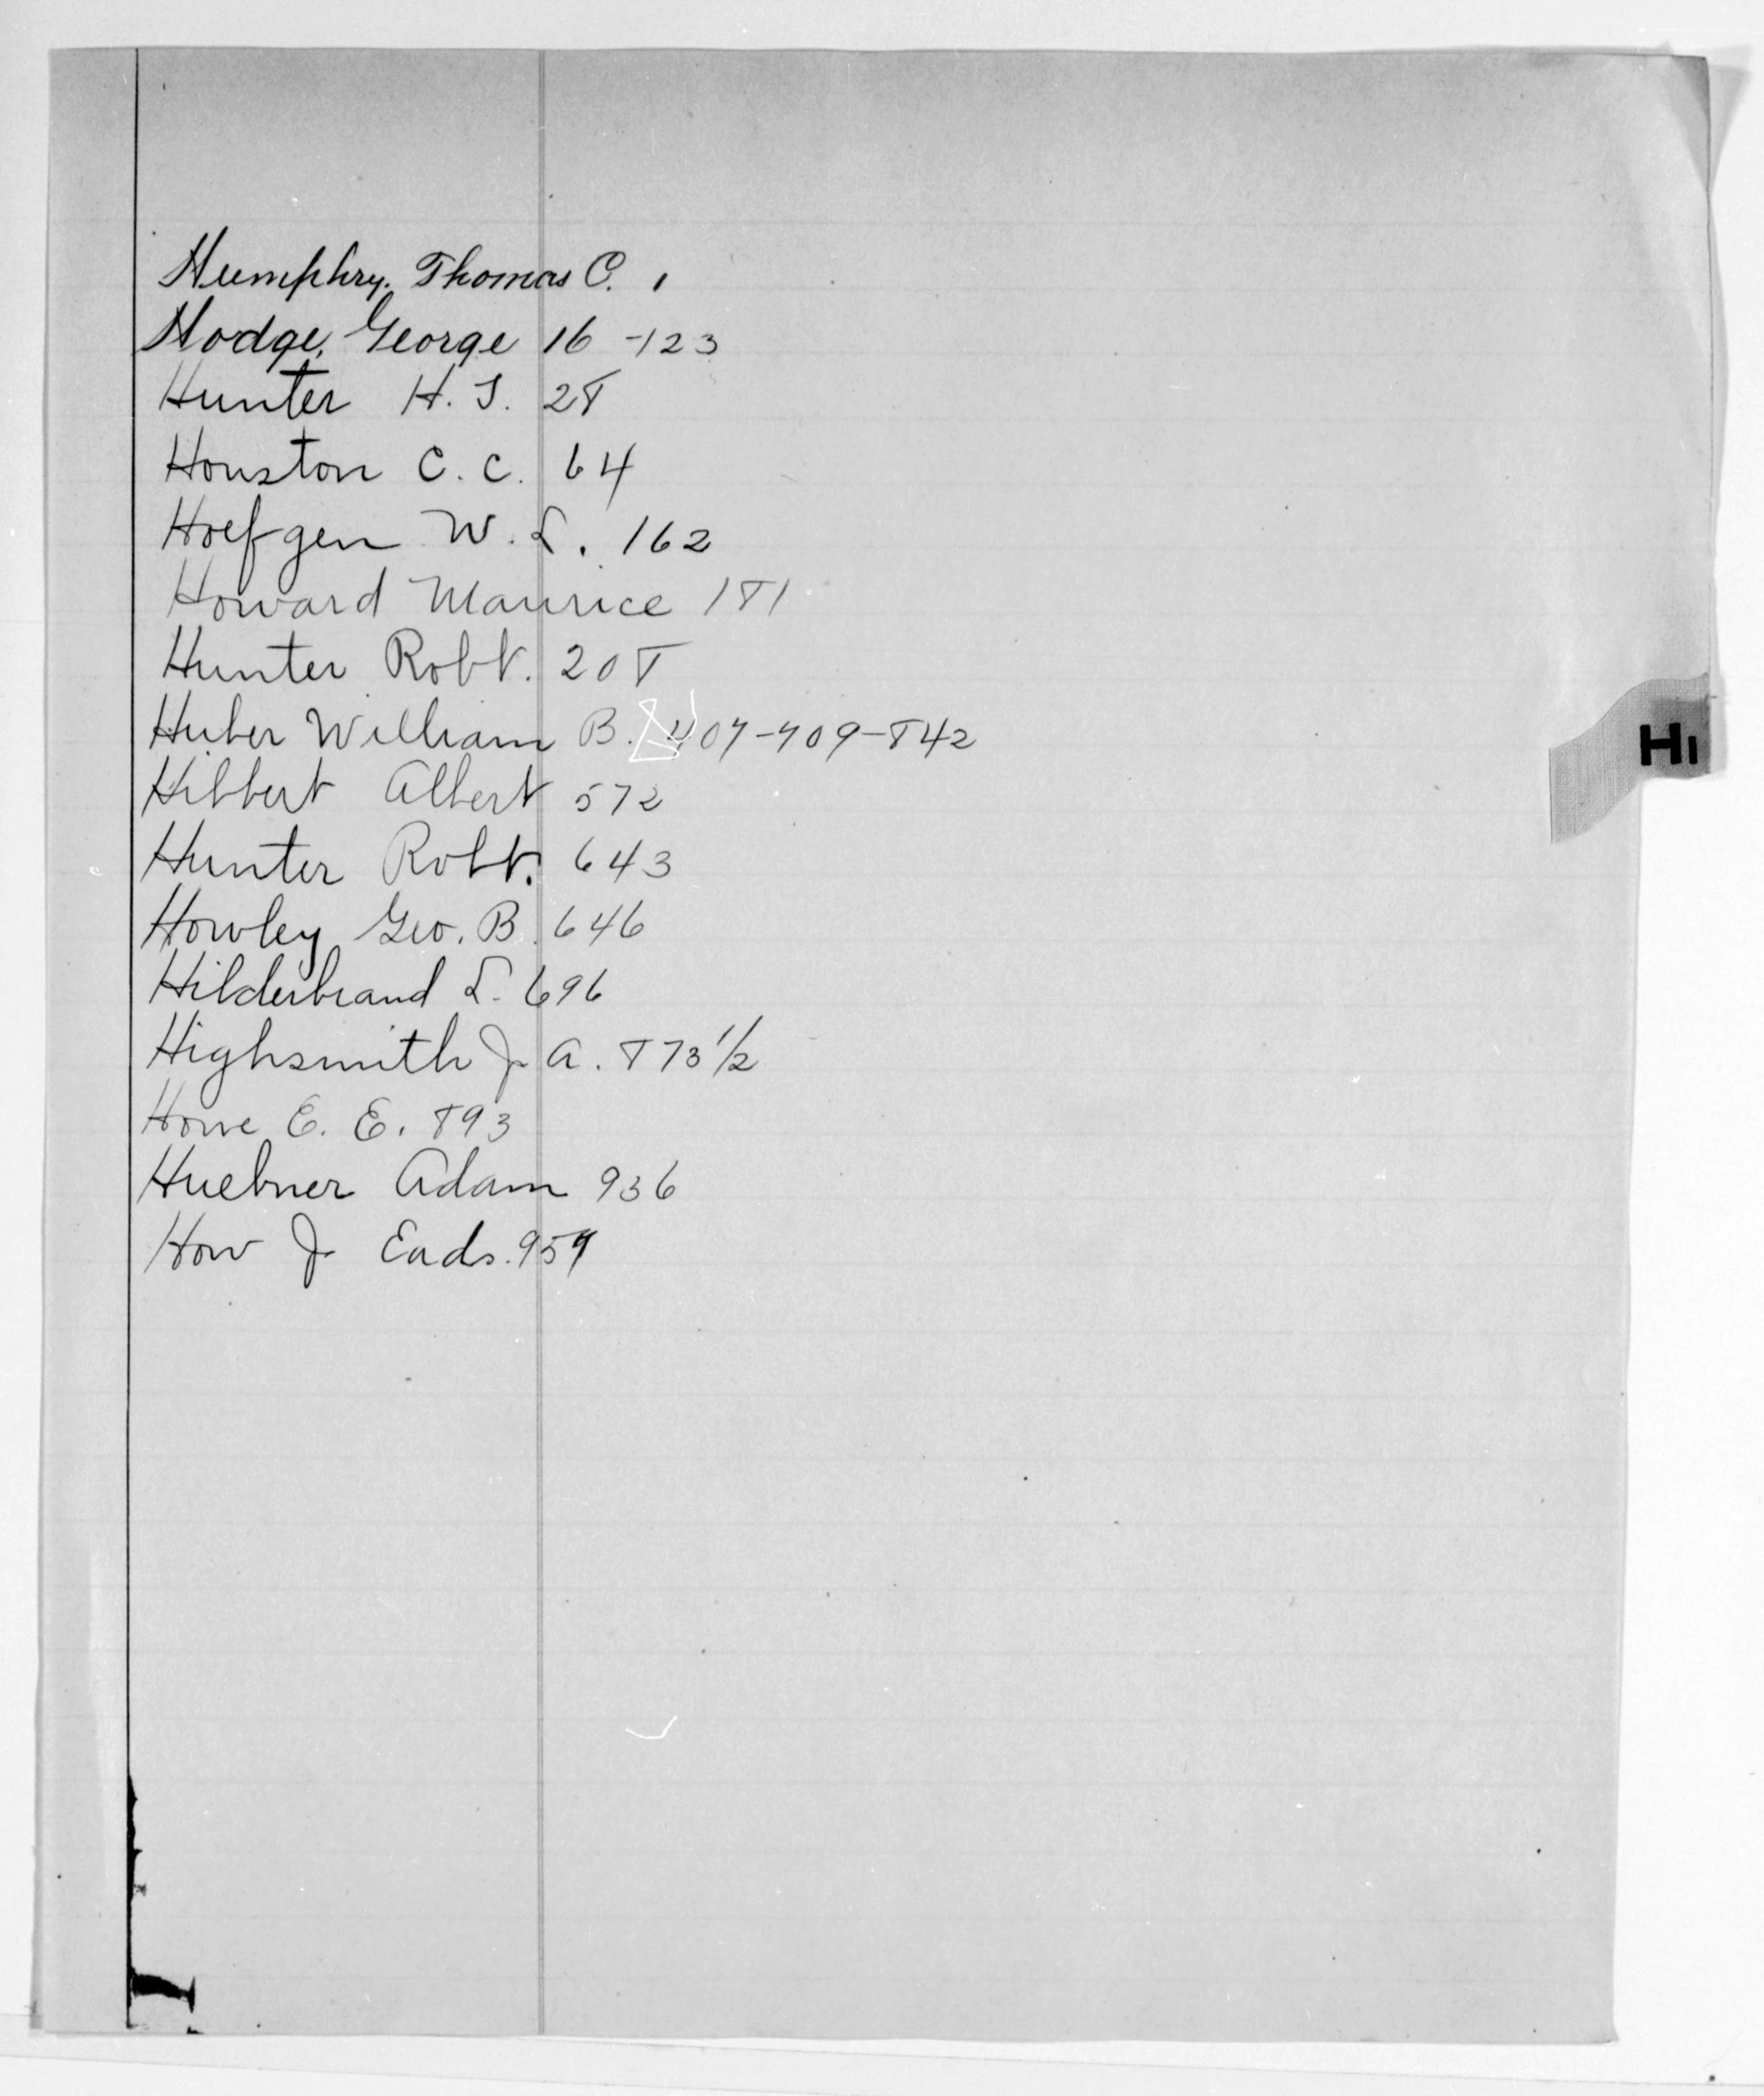 Humphry, Thomas C. 1
Hodge, George 16 - 123
Hunter H. S. 28
Houston C. C. 64
Hoefgen W. L. 162
Howard Maurice 181
Hunter Robt. 208
Huber William B. 407-409-842
Hibbert Albert 572
Hunter Robt. 643
Howley Geo. B. 646
Hilderbrand L. 696
Highsmith J. A. 873 1/2
Howe E. E. 893
Huebner Adam 936
How J. Eads. 959
Hi